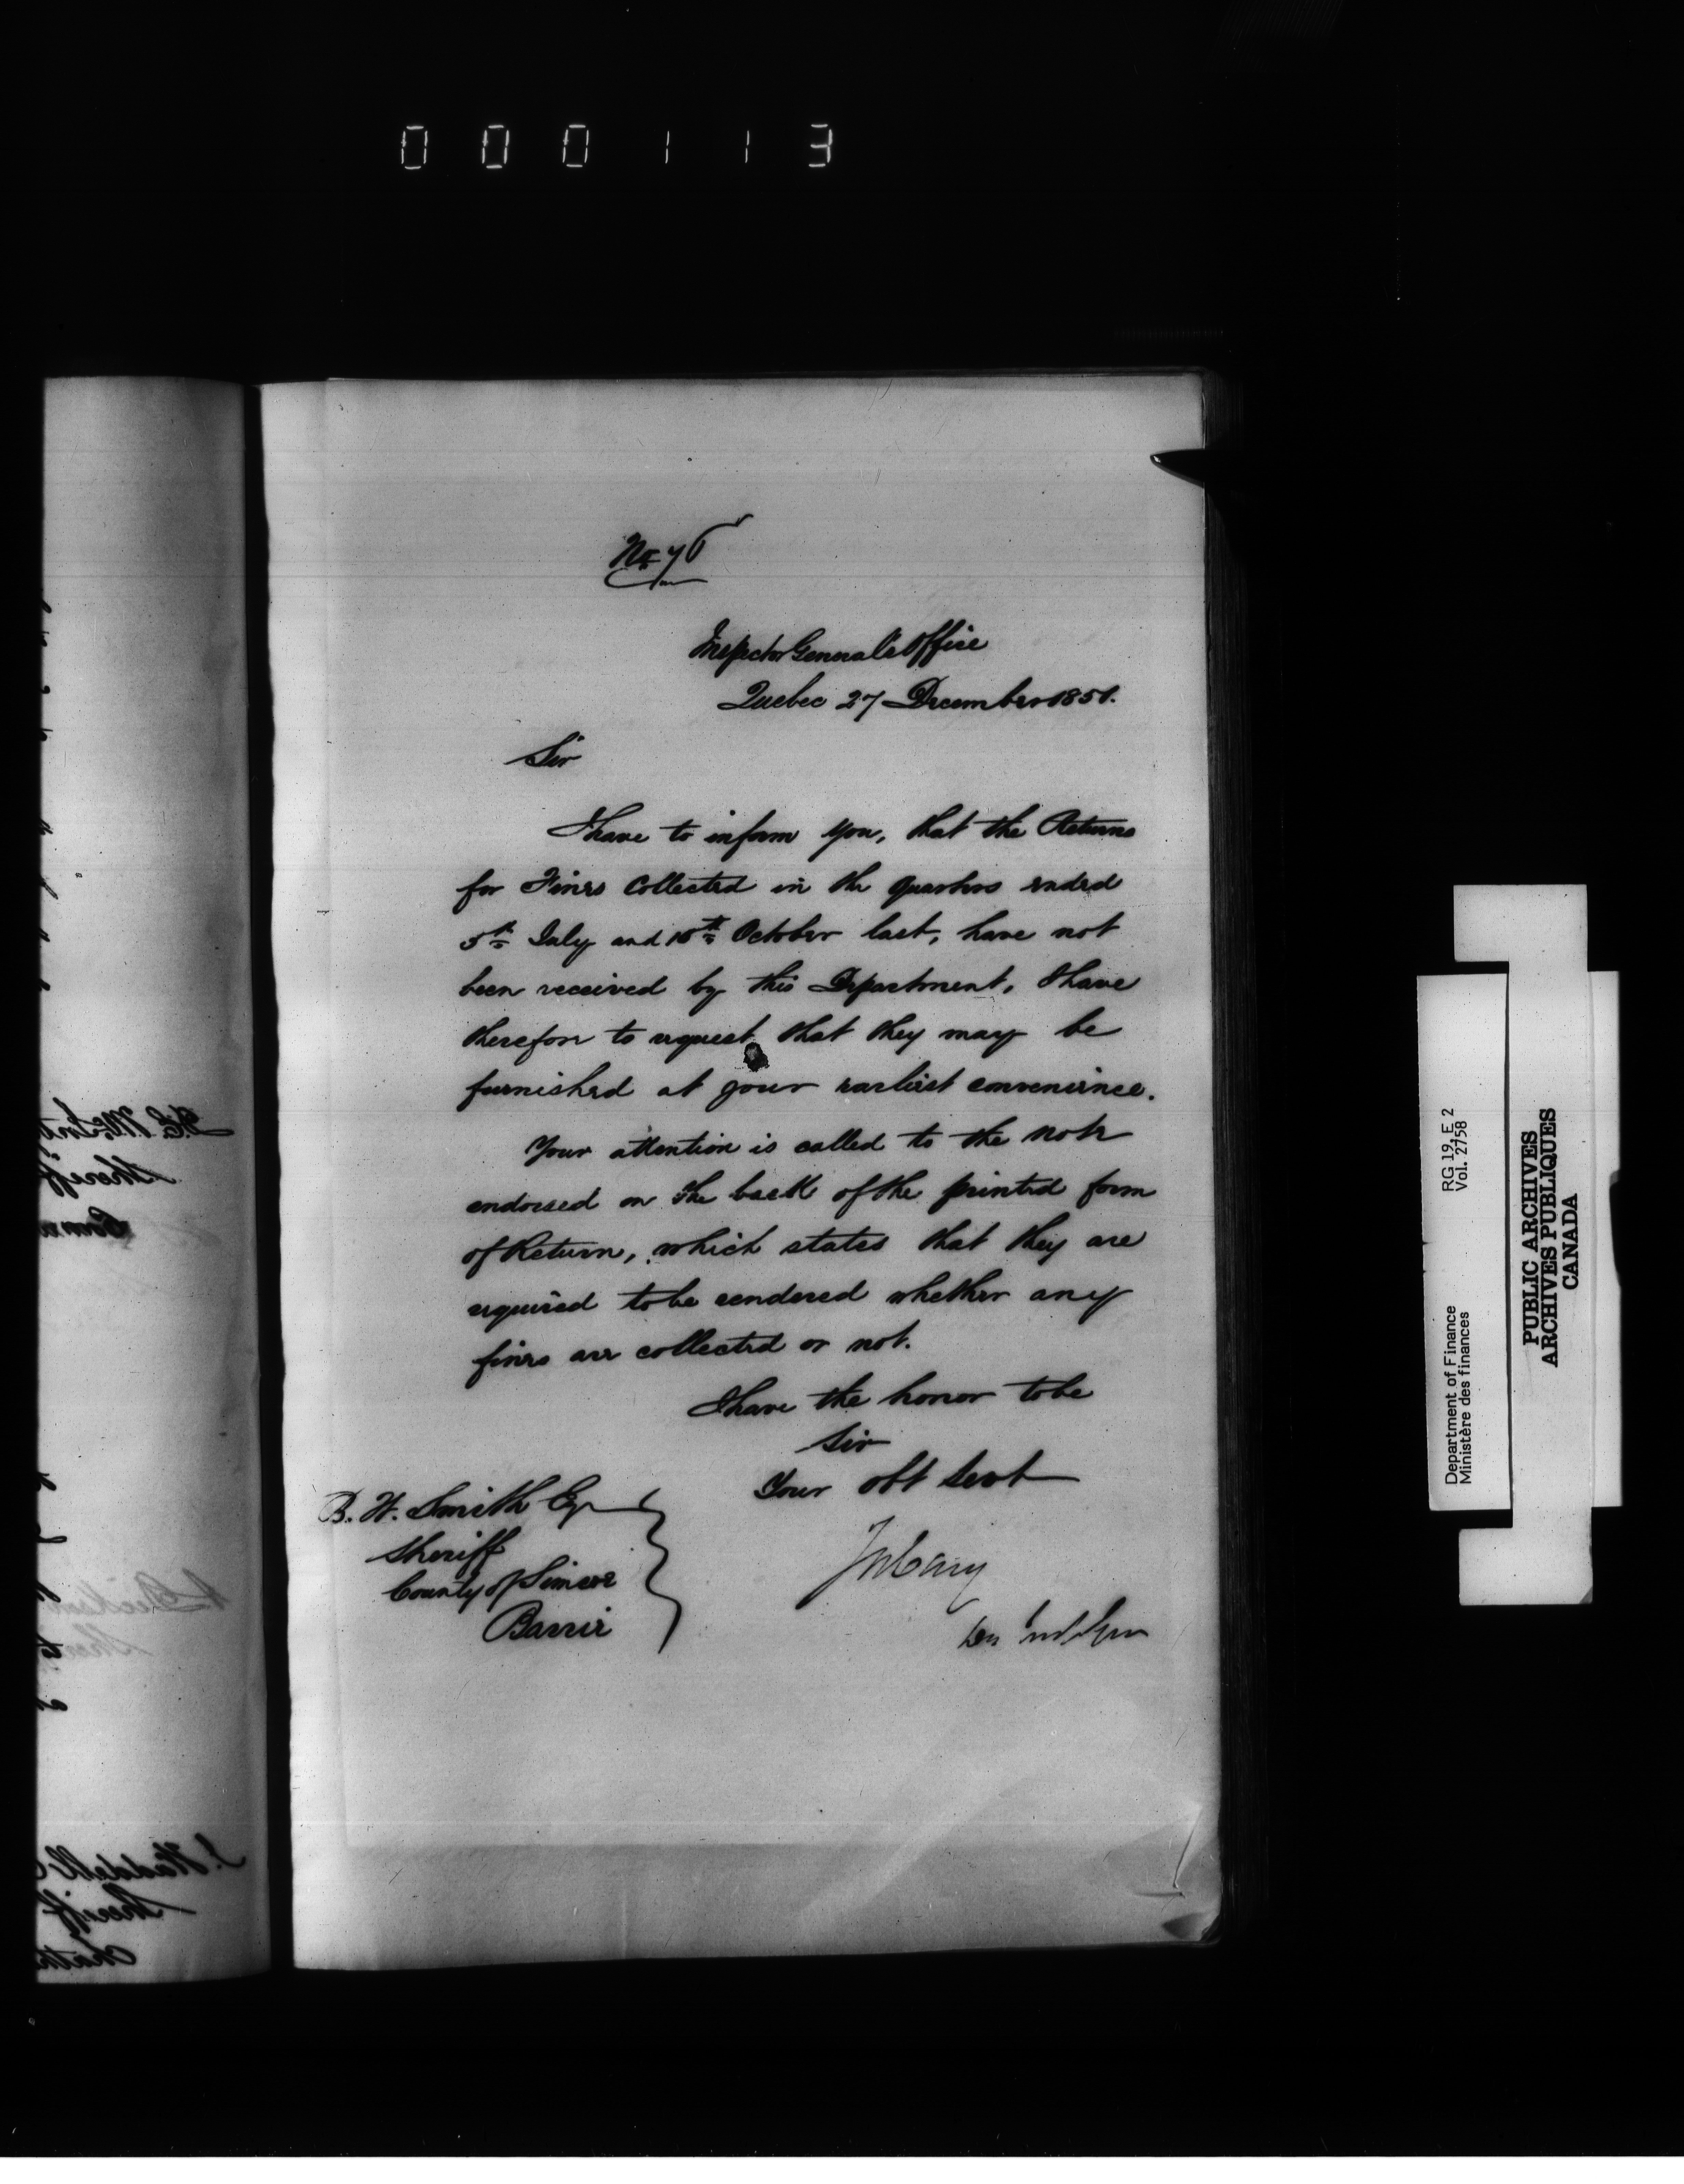 000113
No 76
Inspector General's Office
Quebec 27 December 1851.
Sir
I have to inform you, that the Returns
for Fines Collected in the quarters ended
5th July and 10th October last, have not
been received by this Department, I have
therefore to request that they may be
furnished at your earliest convenience.
Your attention is called to the note
endorsed on the back of the printed form
of Return, which states that they are
required to be rendered whether any
fines are collected or not.
I have the honor to be
Sir
Your obt Servt
B. W. Smith Esq
Sheriff
County of Simcoe
Barrie
Jos Cary
Sheriff
Sheriff
RG 19, E 2
Vol. 2758
Department of Finance
Ministère des finances
PUBLIC ARCHIVES
ARCHIVES PUBLIQUES
CANADA